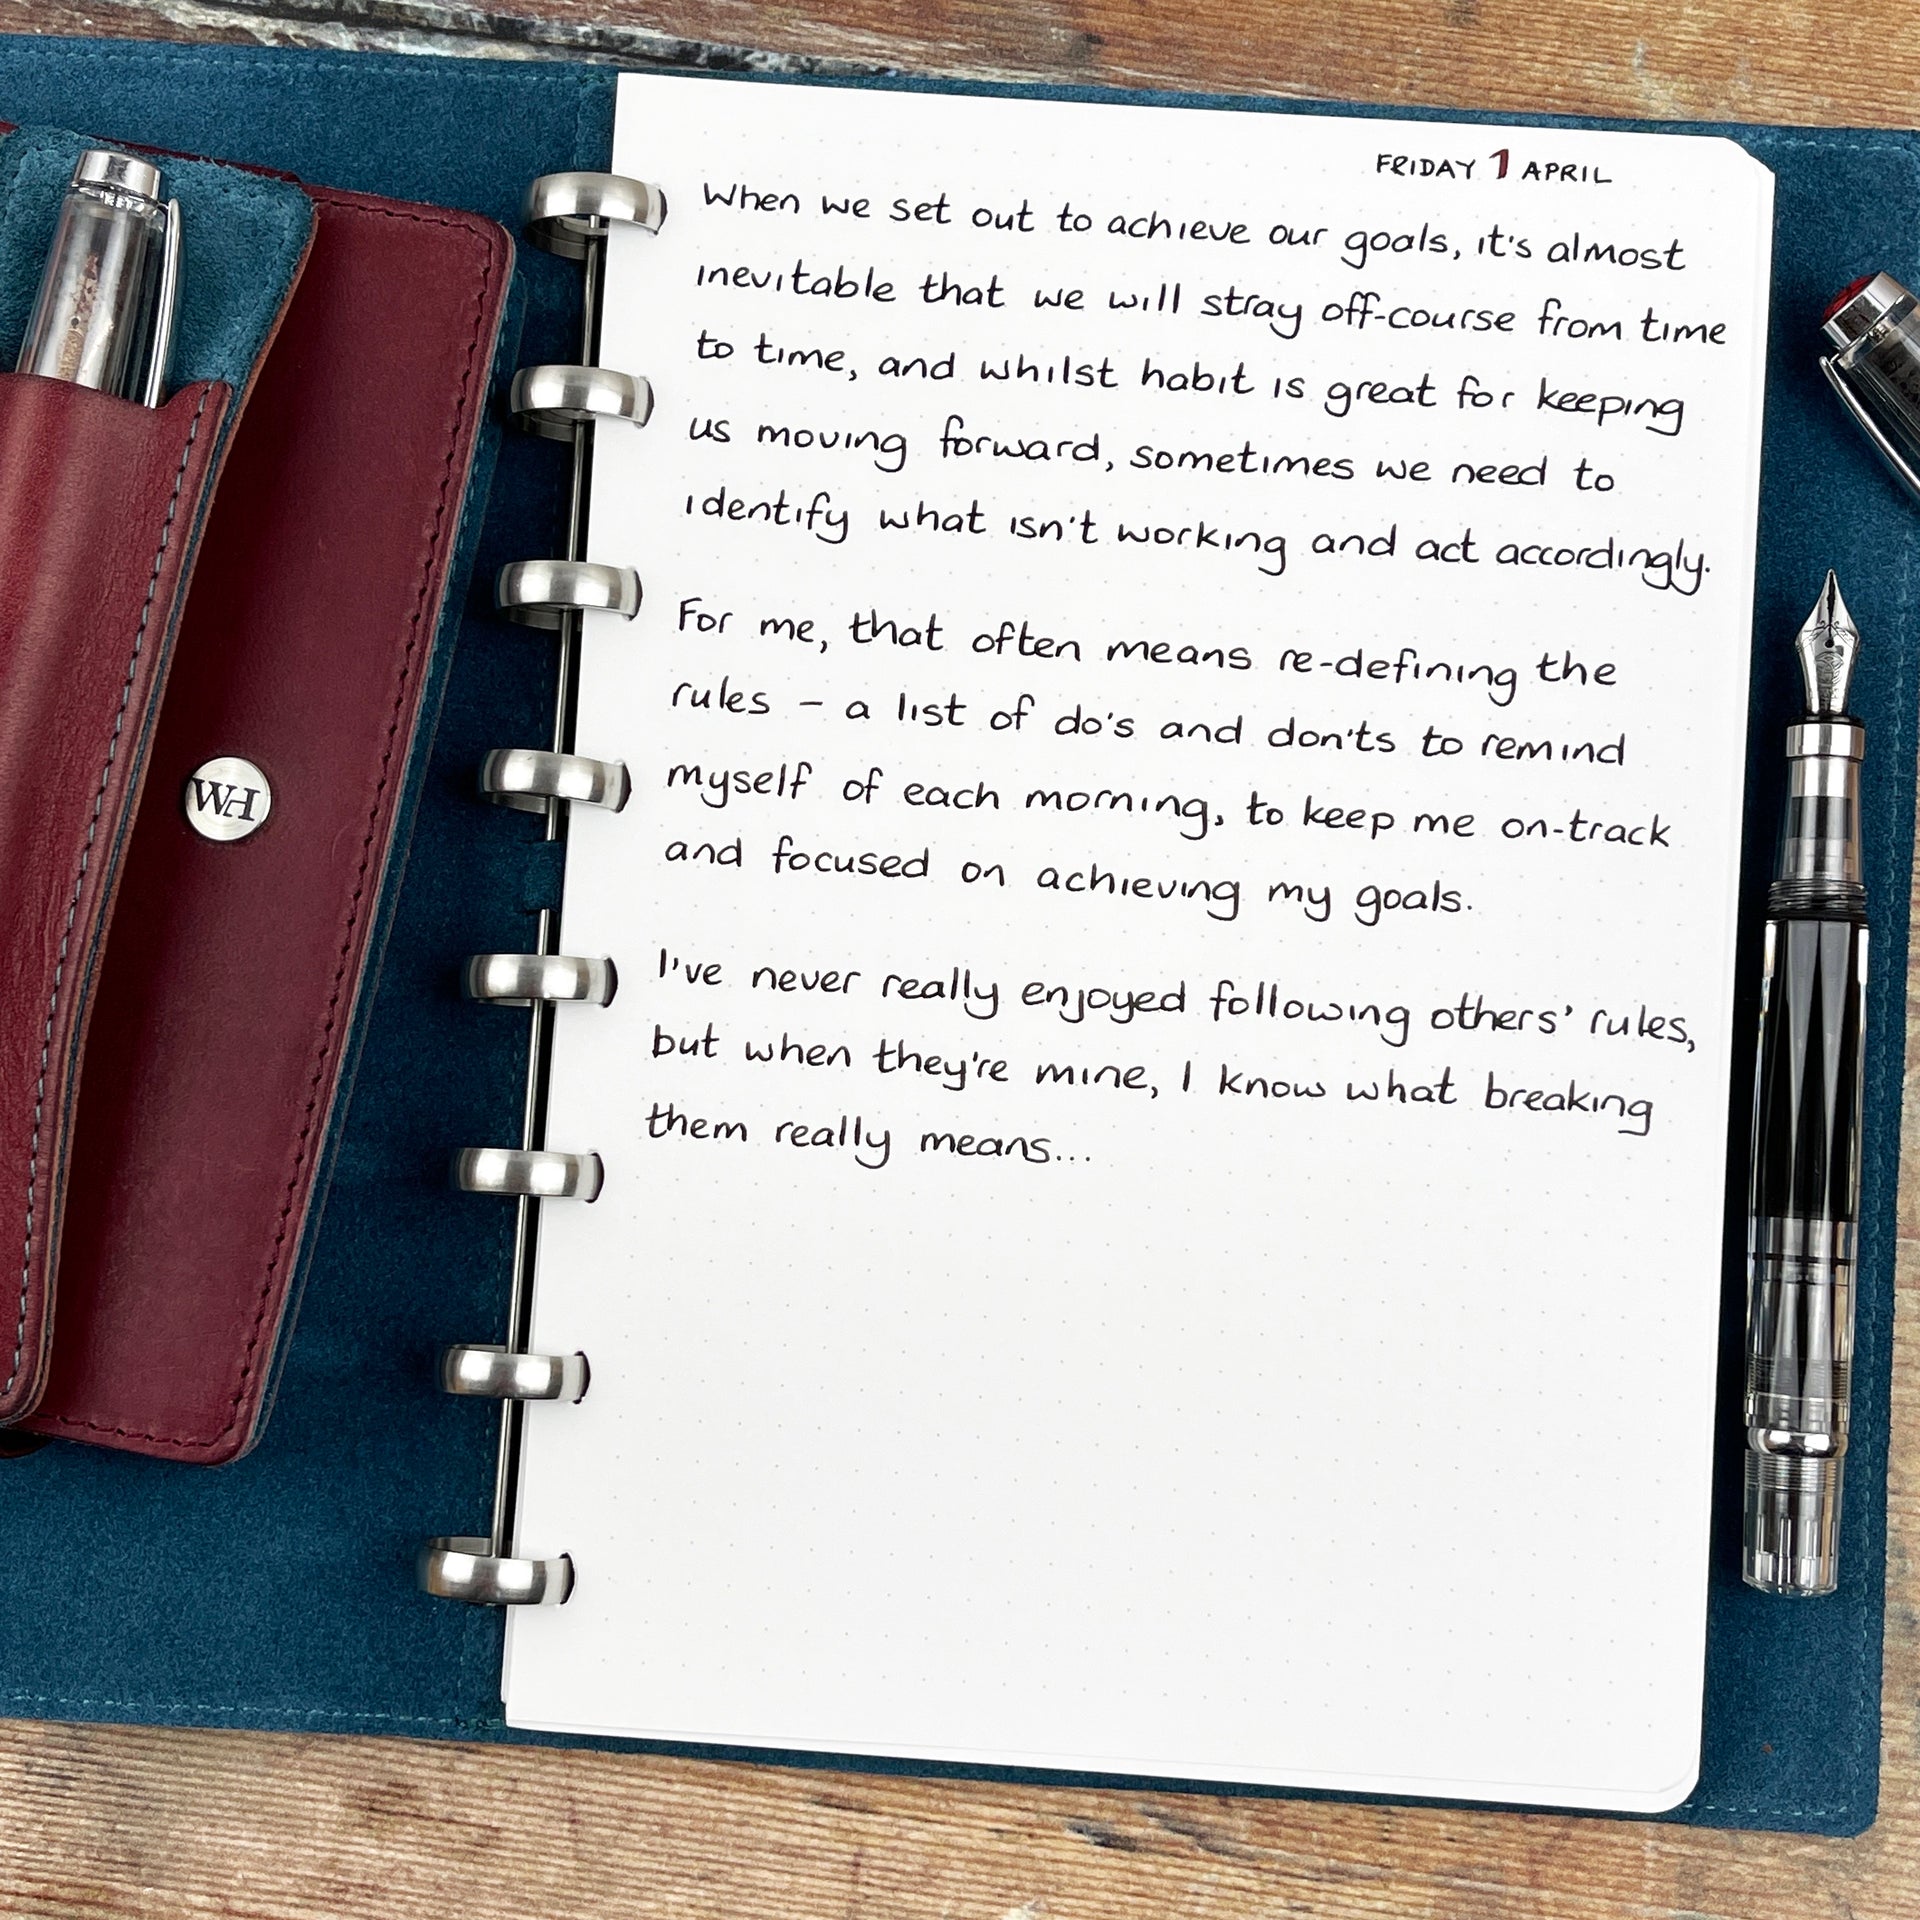 FRIDAY 1 APRIL
When we set out to achieve our goals, it's almost
inevitable that we will stray off-course from time
to time, and whilst habit is great for keeping
us moving forward, sometimes we need to
identify what isn't working and act accordingly.
For me, that often means re-defining the
rules – a list of do's and don'ts to remind
myself of each morning, to keep me on-track
and focused on achieving my goals.
I've never really enjoyed following others' rules,
but when they're mine, I know what breaking
them really means...
WH